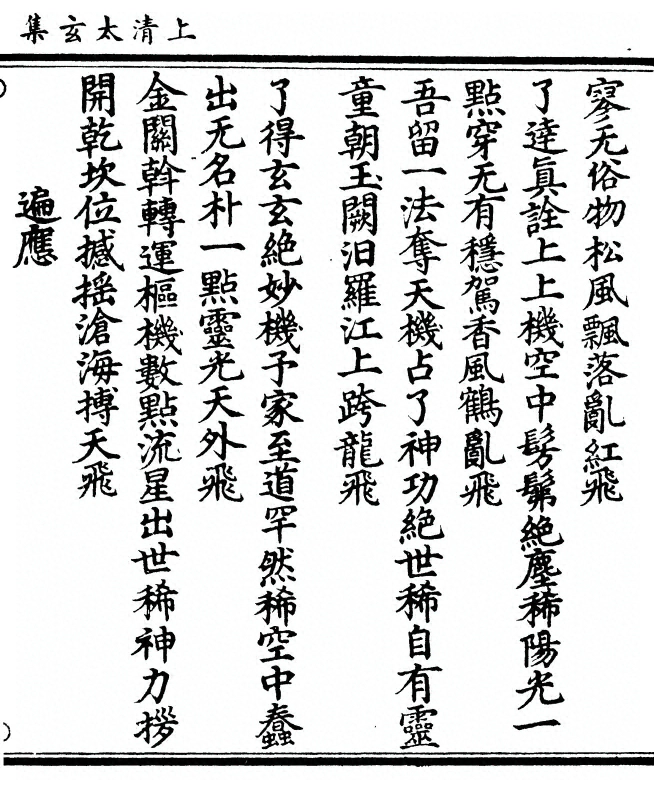 上清太玄集
寥无俗物松風飄落亂紅飛
了達真詮上上機空中髣髴絶塵稀陽光一
點穿无有穩駕香風鶴亂飛
吾留一法奪天機占了神功絶世稀自有靈
童朝玉闕汨羅江上跨龍飛
了得玄玄絶妙機予家至道罕然稀空中蠢
出无名朴一點靈光天外飛
金關斡轉運樞機數點流星出世稀神力拶
開乾坎位撼摇滄海搏天飛
遍應